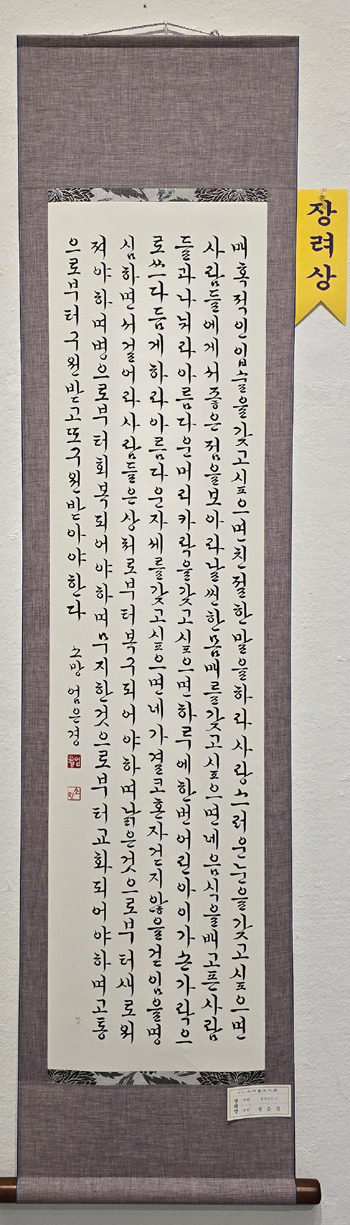 매혹적인입술을갖고싶으면친절한말을하라사랑스러운눈을갖고싶으면
사람들에게서좋은점을보아라날씬한몸매를갖고싶으면네음식을배고픈사람
들과나눠라아름다운머리카락을갖고싶으면하루에한번어린아이가손가락으
로쓰다듬게하라아름다운자세를갖고싶으면네가결코혼자걷지않을것임을명
심하면서걸어라사람들은상처로부터복구되어야하며낡은것으로부터새로워
져야하며병으로부터회복되어야하며무지한것으로부터교화되어야하며고통
으로부터구원받고또구원받아야한다
소망 엄은경
장려상
장려상
엄은경